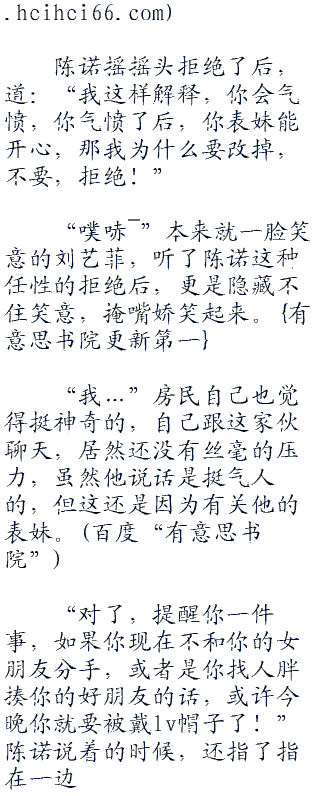 .hcihci66.com)
陈诺摇摇头拒绝了后，
道：“我这样解释，你会气
愤，你气愤了后，你表妹能
开心，那我为什么要改掉，
不要，拒绝！”
“噗哧¯”本来就一脸笑
意的刘艺菲，听了陈诺这种
任性的拒绝后，更是隐藏不
住笑意，掩嘴娇笑起来。{有
意思书院更新第一}
“我…”房民自己也觉
得挺神奇的，自己跟这家伙
聊天，居然还没有丝毫的压
力，虽然他说话是挺气人
的，但这还是因为有关他的
表妹。(百度“有意思书
院”)
“对了，提醒你一件
事，如果你现在不和你的女
朋友分手，或者是你找人胖
揍你的好朋友的话，或许今
晚你就要被戴lv帽子了！”
陈诺说着的时候，还指了指
在一边